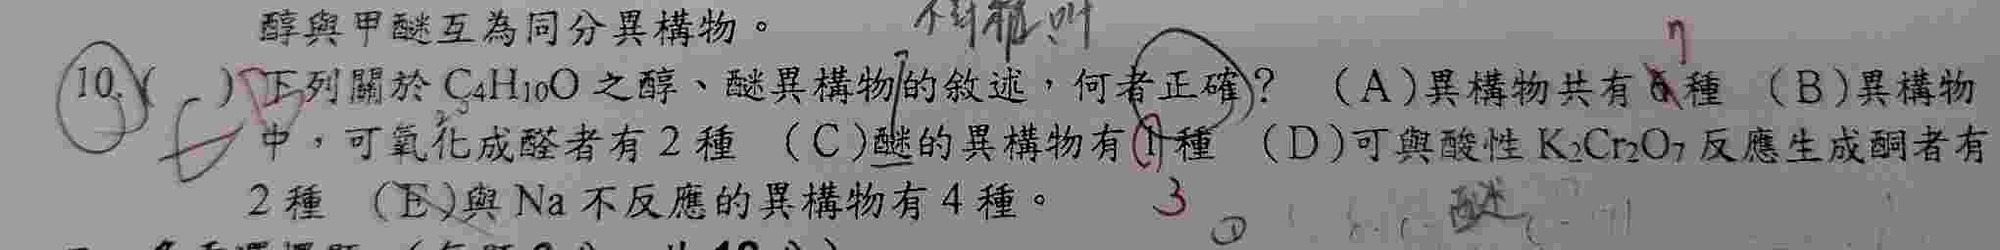 醇與甲醚互為同分異構物。
10.(　)下列關於 C₄H₁₀O 之醇、醚異構物的敘述，何者正確？ (A)異構物共有 6 種 (B)異構物
7
中，可氧化成醛者有 2 種 (C)醚的異構物有 1 種 (D)可與酸性 K₂Cr₂O₇ 反應生成酮者有
2 種 (E)與 Na 不反應的異構物有 4 種。
3
醚